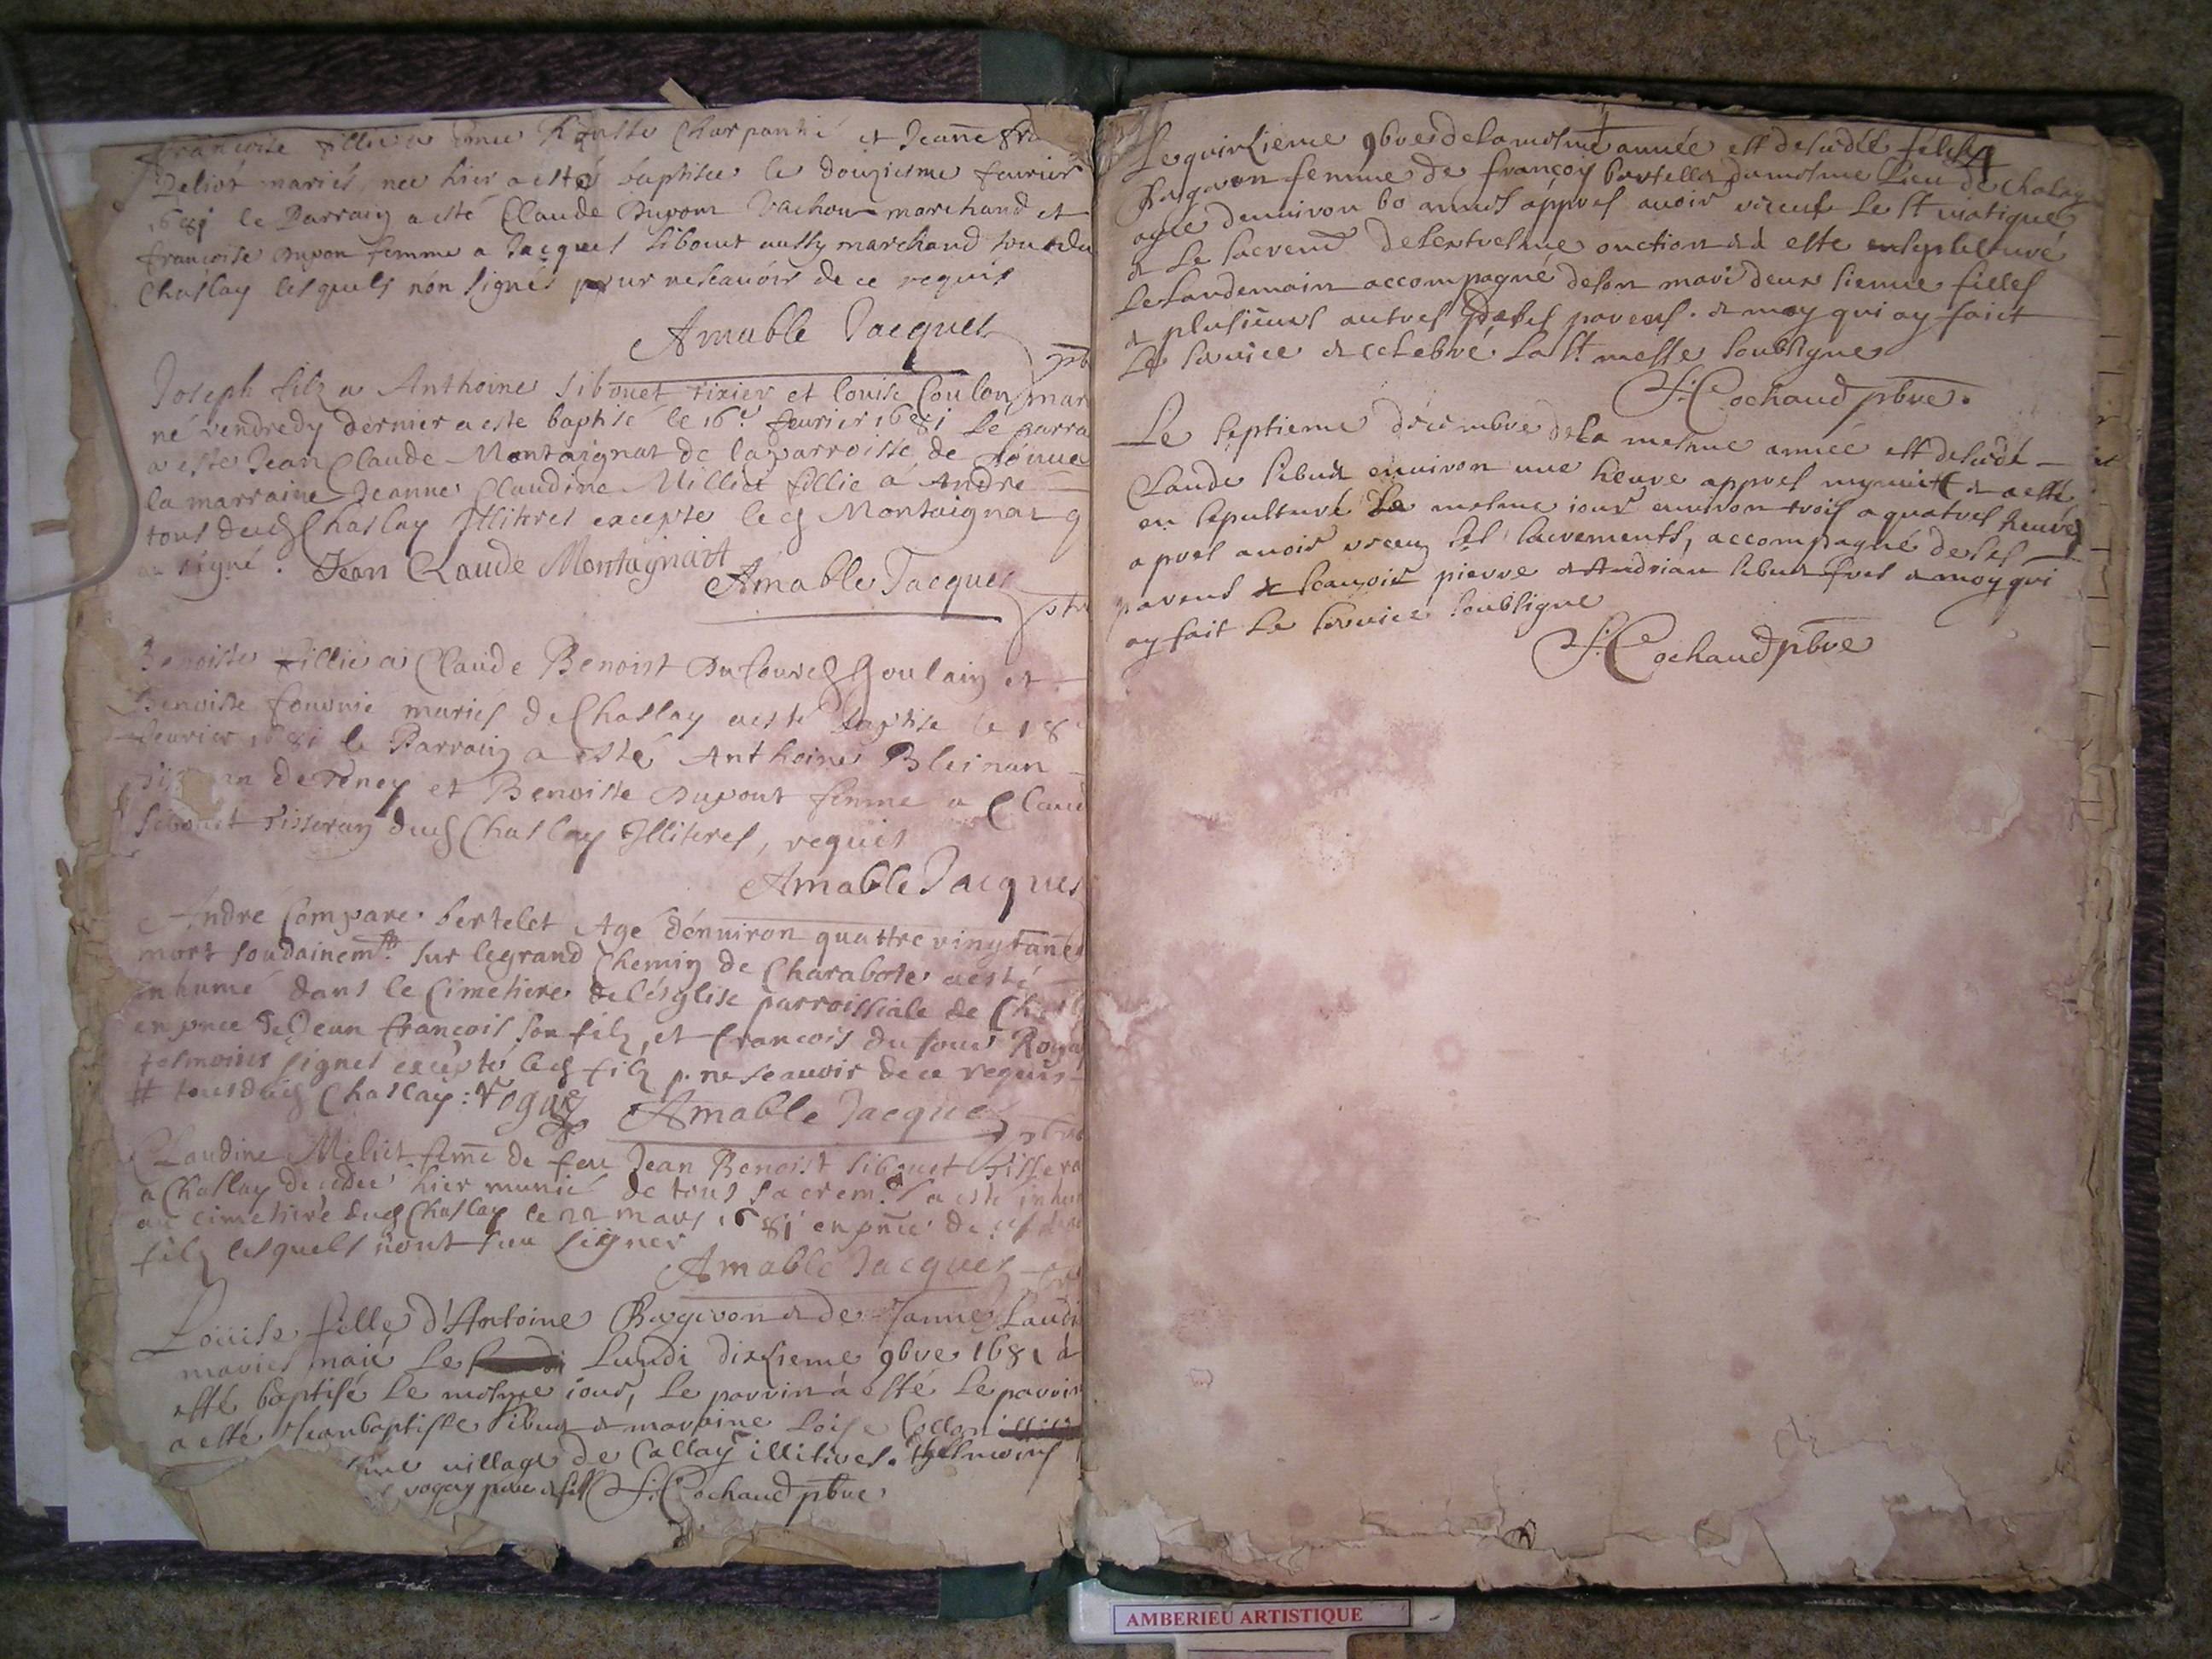 francoise fillie a Charpantié et Jeanne
Deliot mariés, nee hier a esté baptisee le douziesme feurier
1681 le Parrain a esté Claude Dupont Vachon marchand et
francoise Dupon femme a Jacques Sibouet aussy marchand
Chaslay lesquels non signés pour ne scauoir de ce requis
Amable Jacques
Joseph filz a Anthoine Sibouet tixier et Louise Coulon mar
né vendredy dernier a este baptisé le 16e feurier 1681 Le parra
a este Jean Claude Montaignat de la parroisse de
la marraine Jeanne Claudine Milliet fillie a André
tous dud Chaslay Illiteres excepte led Montaignat q
a signé. Jean Claude Montagniat
Amable Jacques ptr
Benoiste fillie a Claude Benoist Dufour et
Benoiste fournié mariés de Chaslay a esté baptise le 18
feurier 1681 le Parrain a esté Anthoine Bleinan
et Benoiste Dupont femme a Claud
Sibouet tisseran dud Chaslay Illiteres, requis
Amable Jacques
André Compare bertelet Agé d'enuiron quattre vingt annés
mort soudainemt. sur le grand Chemin de Charabote a esté
inhumé dans le Cimetiere de l'église parroissiale de
en pnce de Jean francois son filz, et francois du four
tesmoins signés excepté led filz p. ne scauoir de ce requis
# tous dud Chaslay: Amable Jacques
Claudine Meliet feme de feu Jean Benoist Sibouet tissera
a Chaslay decedee hier munie de tous sacremts a esté inhu
au cimetiere dud Chaslay le 22 mars 1681 en pnce de
filz lesquels n'ont sceu signer
Amable Jacques
Louise fille d'Antoine & de Janne
mariés Le Lundi dixsieme 9bre 1681 à
esté baptisé Le mesme iour, Le parrin à esté Le parrin
a esté Jean baptiste Sibuet & marraine Loise Collon
village de Callay illitires. Thesmoins
pere & fils F: Cochaud pbre
Le quinzieme 9bre de la mesme année est desedée
femme de françoy bertellet du mesme Lieu de Chalay
agee denuiron 60 annes appres auoir receut Le st. uiatique
& Le sacremt de Lextresme onction & à esté ensepulturé
Le Landemain accompagné de son mari deux sienne filles
& plusieurs autres de ses parens. & moy qui ay faict
Le seruice & celebré La st. messe soubsigne
F: Cochaud pbre.
Le septieme décembre de la mesme année est desedé
Claude Sibuet enuiron une heure appres mynuict & a esté
en sepulturé Le mesme iour enuiron trois a quatres heures
apres auoir receu ses sacrements, accompagné de ses
parens & scauoir pierre & Andrian Sibuet fres & moy qui
ay fait Le seruice soubsigne
F: Cochaud pbre
AMBERIEU ARTISTIQUE